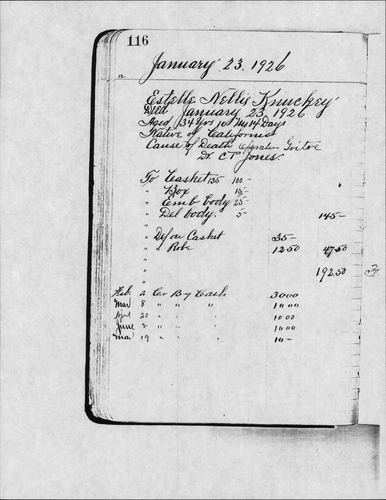 116
January 23, 1926
Estelle Nellie Knuckey
Died January 23, 1926
Aged 34 Yrs 10 Mo 14 Days
Native of California
Cause of Death Goitre
Dr. C T Jones.
To Casket 135 100-
" Box 15-
" Emb body 25-
" Del body. 5- 145-
" Dif on Casket 35-
" " Robe 12 50 47.50
"
" 192.50
Feb. 2 Cr By Cash 30 00
Mar 8 " " " 10 00
Aprl 20 " " 10 00
June 2 " " " 10 00
19 " " 10-